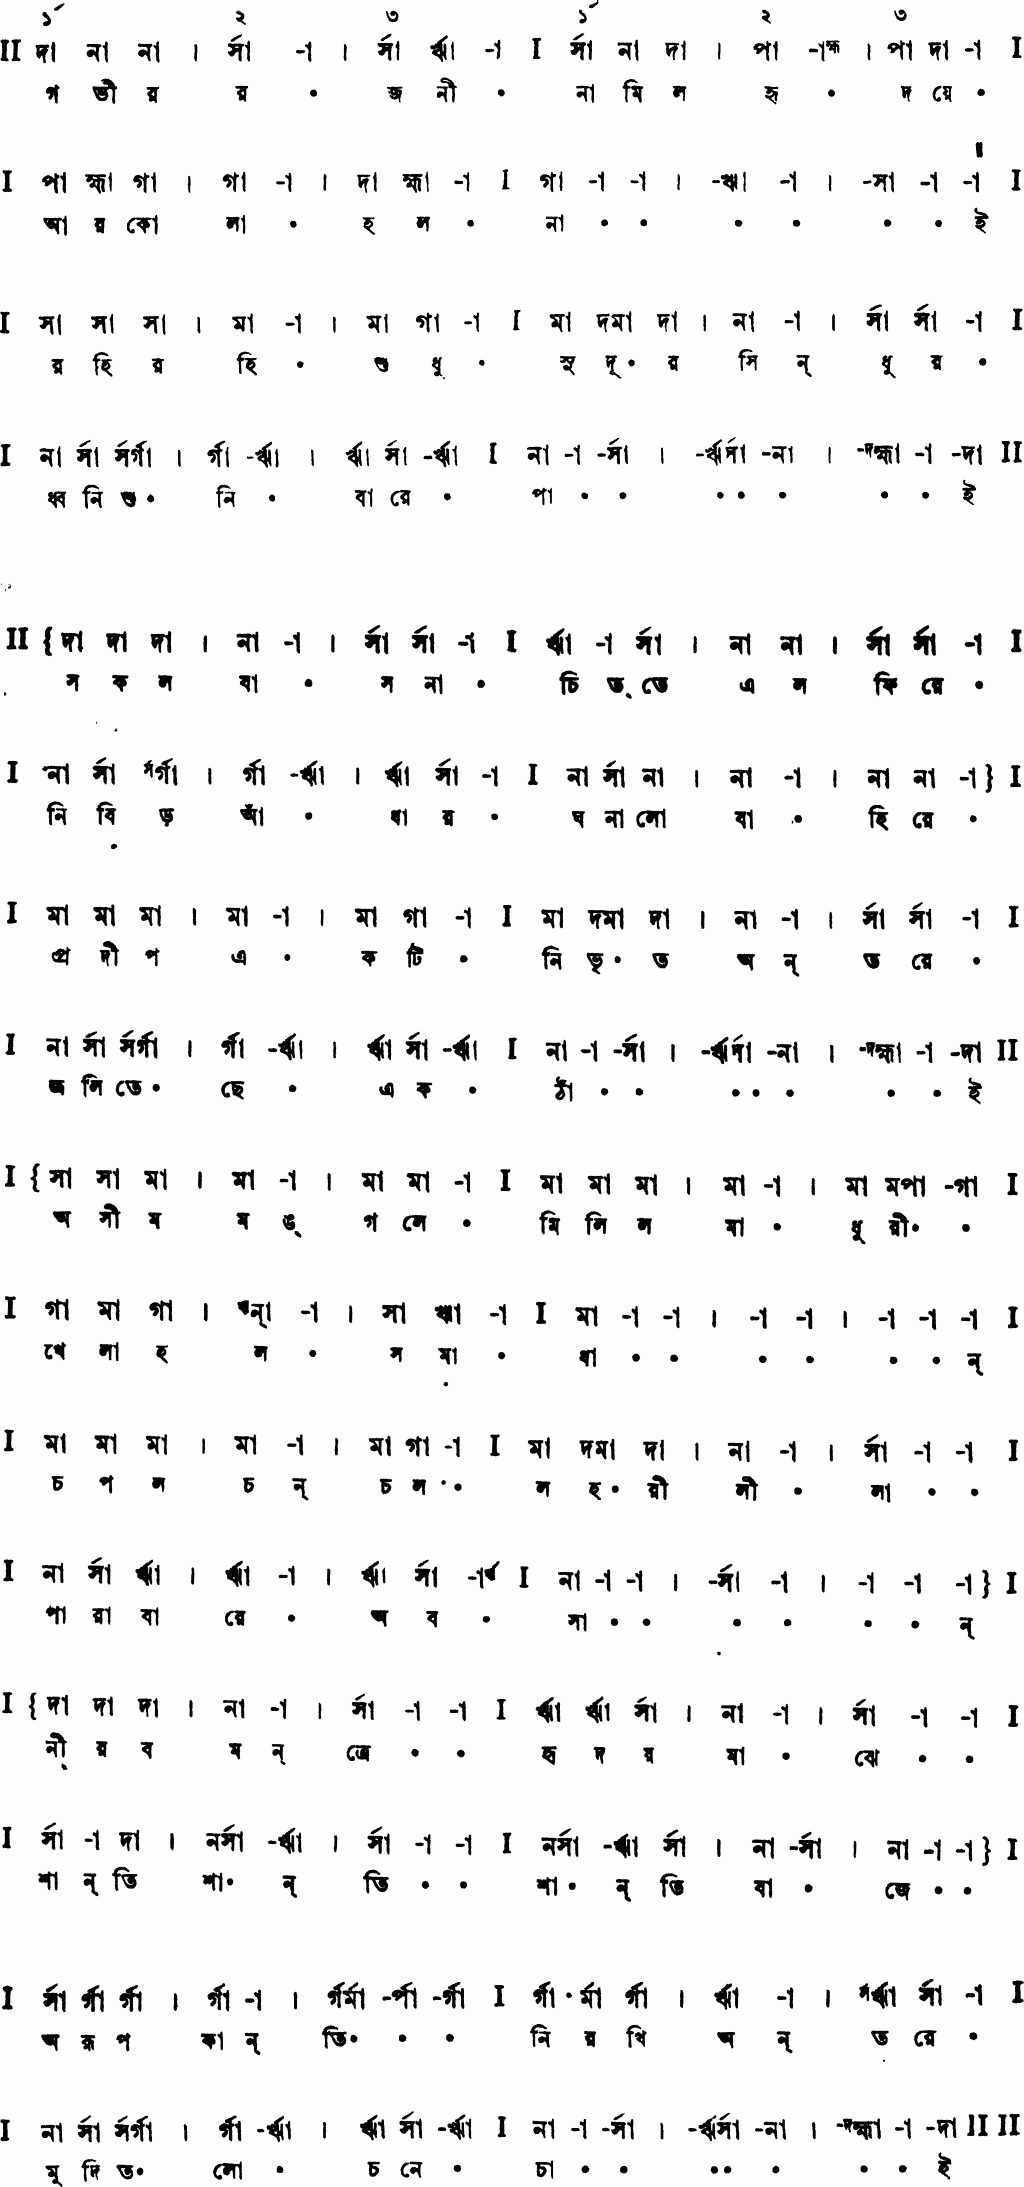 ১´ ২ ৩ ১´ ২ ৩
II দা না না । র্সা -া । র্সা র্ঋা -া I র্সা না দা । পা -াহ্ম । পা দা -া I
গ ভী র র • জ নী • না মি ল হৃ • দ য়ে •
I পা হ্মা গা । গা -া । দা হ্মা -া I গা -া -া । -ঋা -া । -সা -া -া I
আ র কো লা • হ ল • না • • • • • • ই
I সা সা সা । মা -া । মা গা -া I মা দমা দা । না -া । র্সা র্সা -া I
র হি র হি • শু ধু • সু দূ • র সি ন্ ধু র •
I না র্সা র্সর্গা । র্গা -র্ঋা । র্ঋা র্সা -র্ঋা I না -া -র্সা । -র্ঋর্সা -না । -দহ্মা -া -দা II
ধ্ব নি শু • নি • বা রে • পা • • • • • • • ই
II {দা দা দা । না -া । র্সা র্সা -া I র্ঋা -া র্সা । না না । র্সা র্সা -া I
স ক ল বা • স না • চি ত্ তে এ ল ফি রে •
I না র্সা র্সর্গা । র্গা -র্ঋা । র্ঋা র্সা -া I না র্সা না । না -া । না না -া} I
নি বি ড় আঁ • ধা র • ঘ না লো বা • হি রে •
I মা মা মা । মা -া । মা গা -া I মা দমা দা । না -া । র্সা র্সা -া I
প্র দী প এ • ক টি • নি ভৃ • ত অ ন্ ত রে •
I না র্সা র্সর্গা । র্গা -র্ঋা । র্ঋা র্সা -র্ঋা I না -া -র্সা । -র্ঋর্সা -না । -দহ্মা -া -দা II
জ লি তে • ছে • এ ক • ঠাঁ • • • • • • • ই
I {সা সা মা । মা -া । মা মা -া I মা মা মা । মা -া । মা মপা -গা I
অ সী ম ম ঙ্ গ লে • মি লি ল মা • ধু রী • •
I গা মা গা । ন্া -া । সা ঋা -া I মা -া -া । -া -া । -া -া -া I
খে লা হ ল • স মা • ধা • • • • • • ন্
I মা মা মা । মা -া । মা গা -া I মা দমা দা । না -া । র্সা -া -া I
চ প ল চ ন্ চ ল • ল হ • রী লী • লা • •
I না র্সা র্ঋা । র্ঋা -া । র্ঋা র্সা -া I না -া -া । -র্সা -া । -া -া -া} I
পা রা বা রে • অ ব • সা • • • • • • ন্
I {দা দা দা । না -া । র্সা -া -া I র্ঋা র্ঋা র্সা । না -া । র্সা -া -া I
নী র ব ম ন্ ত্রে • • হৃ দ য় মা • ঝে • •
I র্সা -া দা । নর্সা -র্ঋা । র্সা -া -া I নর্সা -র্ঋা র্সা । না -র্সা । না -া -া} I
শা ন্ তি শা • ন্ তি • • শা • ন্ তি বা • জে • •
I র্সা র্গা র্গা । র্গা -া । র্গর্মা -র্পা -র্গা I র্গা র্মা র্গা । র্ঋা -া । র্সর্ঋা র্সা -া I
অ রূ প কা ন্ তি • • • নি র খি অ ন্ ত রে •
I না র্সা র্সর্গা । র্গা -র্ঋা । র্ঋা র্সা -র্ঋা I না -া -র্সা । -র্ঋর্সা -না । -দহ্মা -া -দা II II
মু দি ত • লো • চ নে • চা • • • • • • • ই